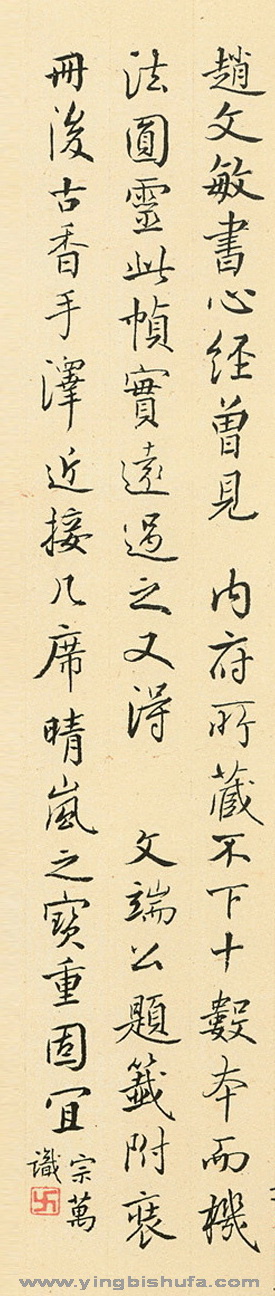 趙文敏書心経曽見 內府所藏不下十數本而機
法圓靈此幀實遠過之又得 文端公題籤附裝
冊後古香手澤近接几席晴嵐之寶重固宜
宗萬
識
卐
www.yingbishufa.com